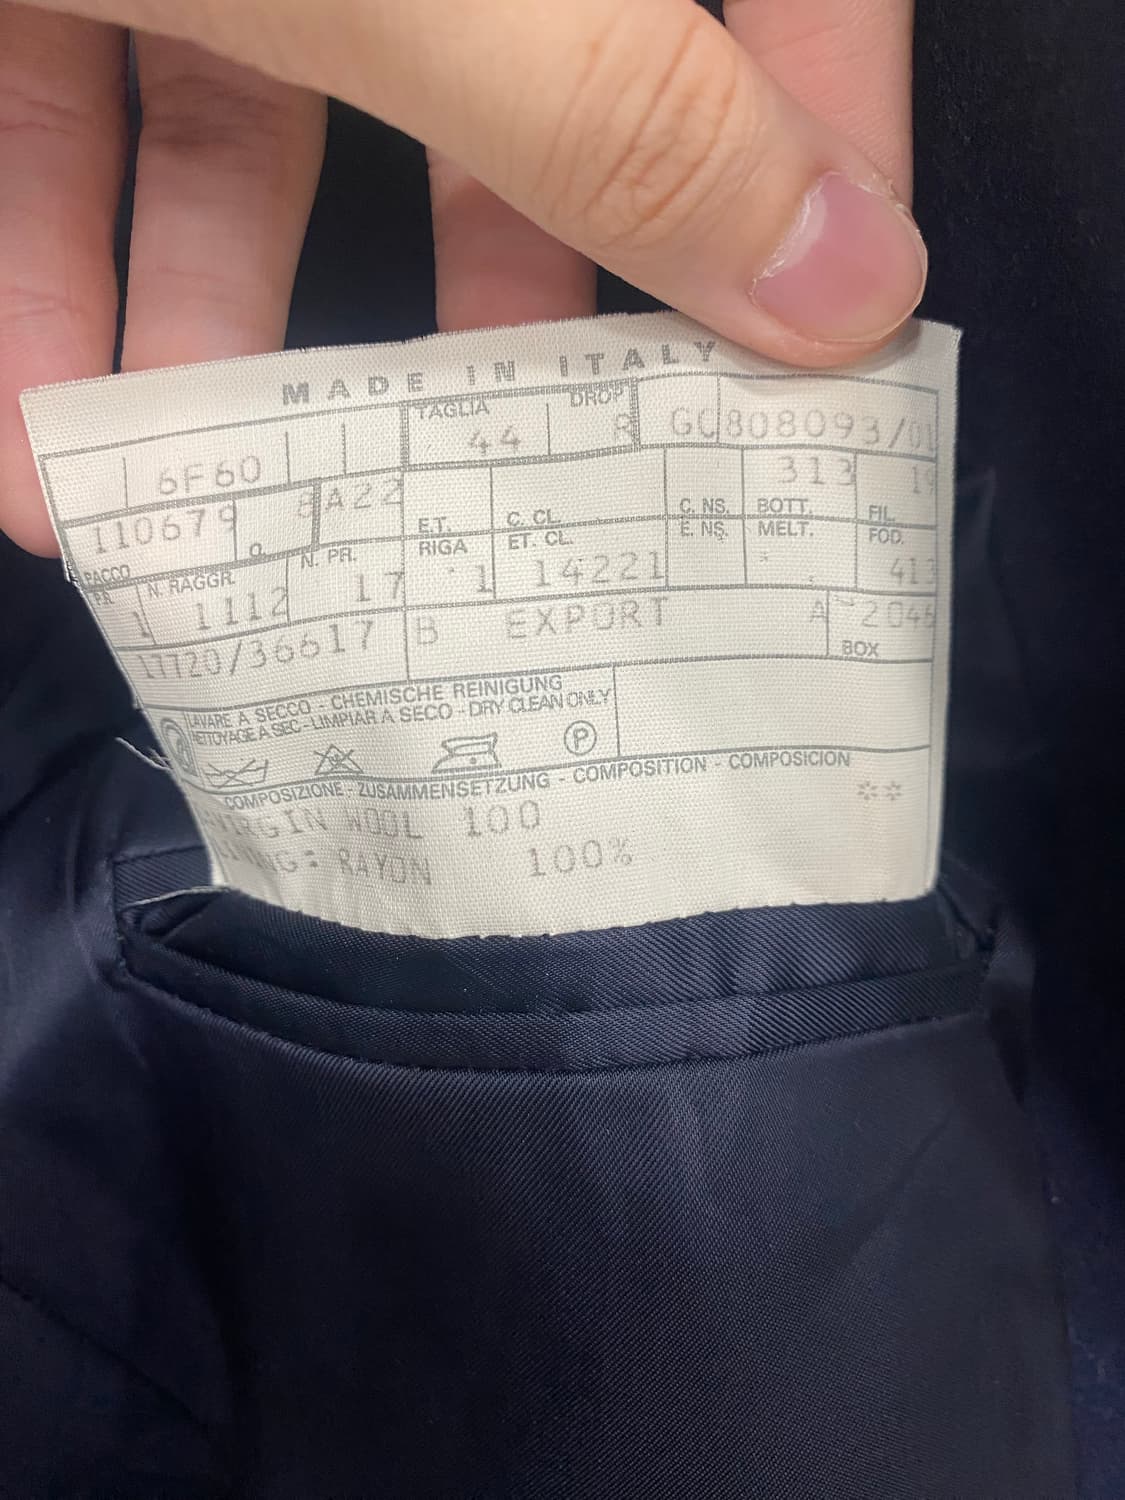 MADE IN ITALY
TAGLIA DROP
6F60 44 R GC808093/01
110679 8A22 313 19
PACCO O. N. PR. E.T. C. CL. C. NS. BOTT. FIL.
N. RAGGR. RIGA ET. CL. E. NS. MELT. FOD.
1 1112 17 1 14221 413
17720/36617 B EXPORT A 2046
BOX
LAVARE A SECCO - CHEMISCHE REINIGUNG
NETTOYAGE A SEC - LIMPIAR A SECO - DRY CLEAN ONLY
P
COMPOSIZIONE - ZUSAMMENSETZUNG - COMPOSITION - COMPOSICION
VIRGIN WOOL 100 **
RAYON 100%